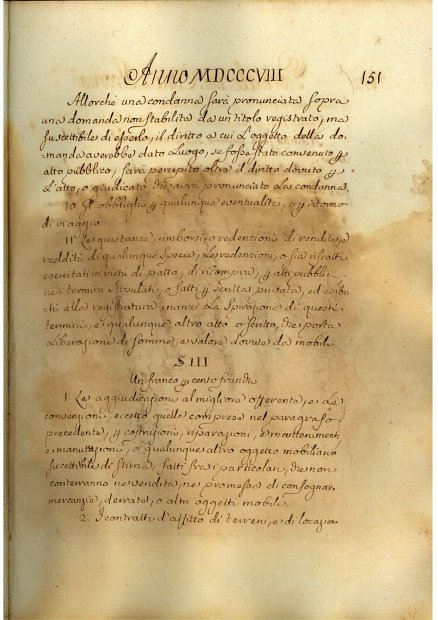 ANNO MDCCCVIII 151
Allorchè una condanna sarà pronunciata sopra
una domanda non stabilita da un titolo registrato, ma
suscettibile di esserlo, il diritto a cui l'oggetto della do-
manda averebbe dato luogo, se fosse stato convenuto p
atto pubblico, sarà percepito oltre il diritto dovuto p
l'atto, o giudicato che avrà pronunciato la condanna.
10. obblighi p qualunque eventualità, o p ritorno
di viaggio.
11. Le quietanze, rimborsi, o redenzioni di rendite, e
redditi di qualunque specie, le redenzioni, o sia riscatti
esercitati in virtù di patto, di ricompra, p atti pubblici
nei termini stipulati, o fatti p scritta privata, ed esibi-
ti alla registratura inanzi la spirazione di questi
termini, e qualunque altro atto o scritto, che porta
liberazione di somme, e valore dovute da mobili.
§ III
Un franco p cento franchi
1. Le aggiudicazioni al migliore offerente, e le
convenzioni, eccetto quelle comprese nel paragrafo
precedente, p costruzioni, riparazioni, e mantenimenti
e qualunque altro oggetto mobiliano
suscettibile di stima, fatti fra i particolari, che non
conterranno ne vendita, ne promessa di consegnar
mercanzie, derrate, o altri oggetti mobili.
2. I contratti d'affitto di terreni, e di locazion